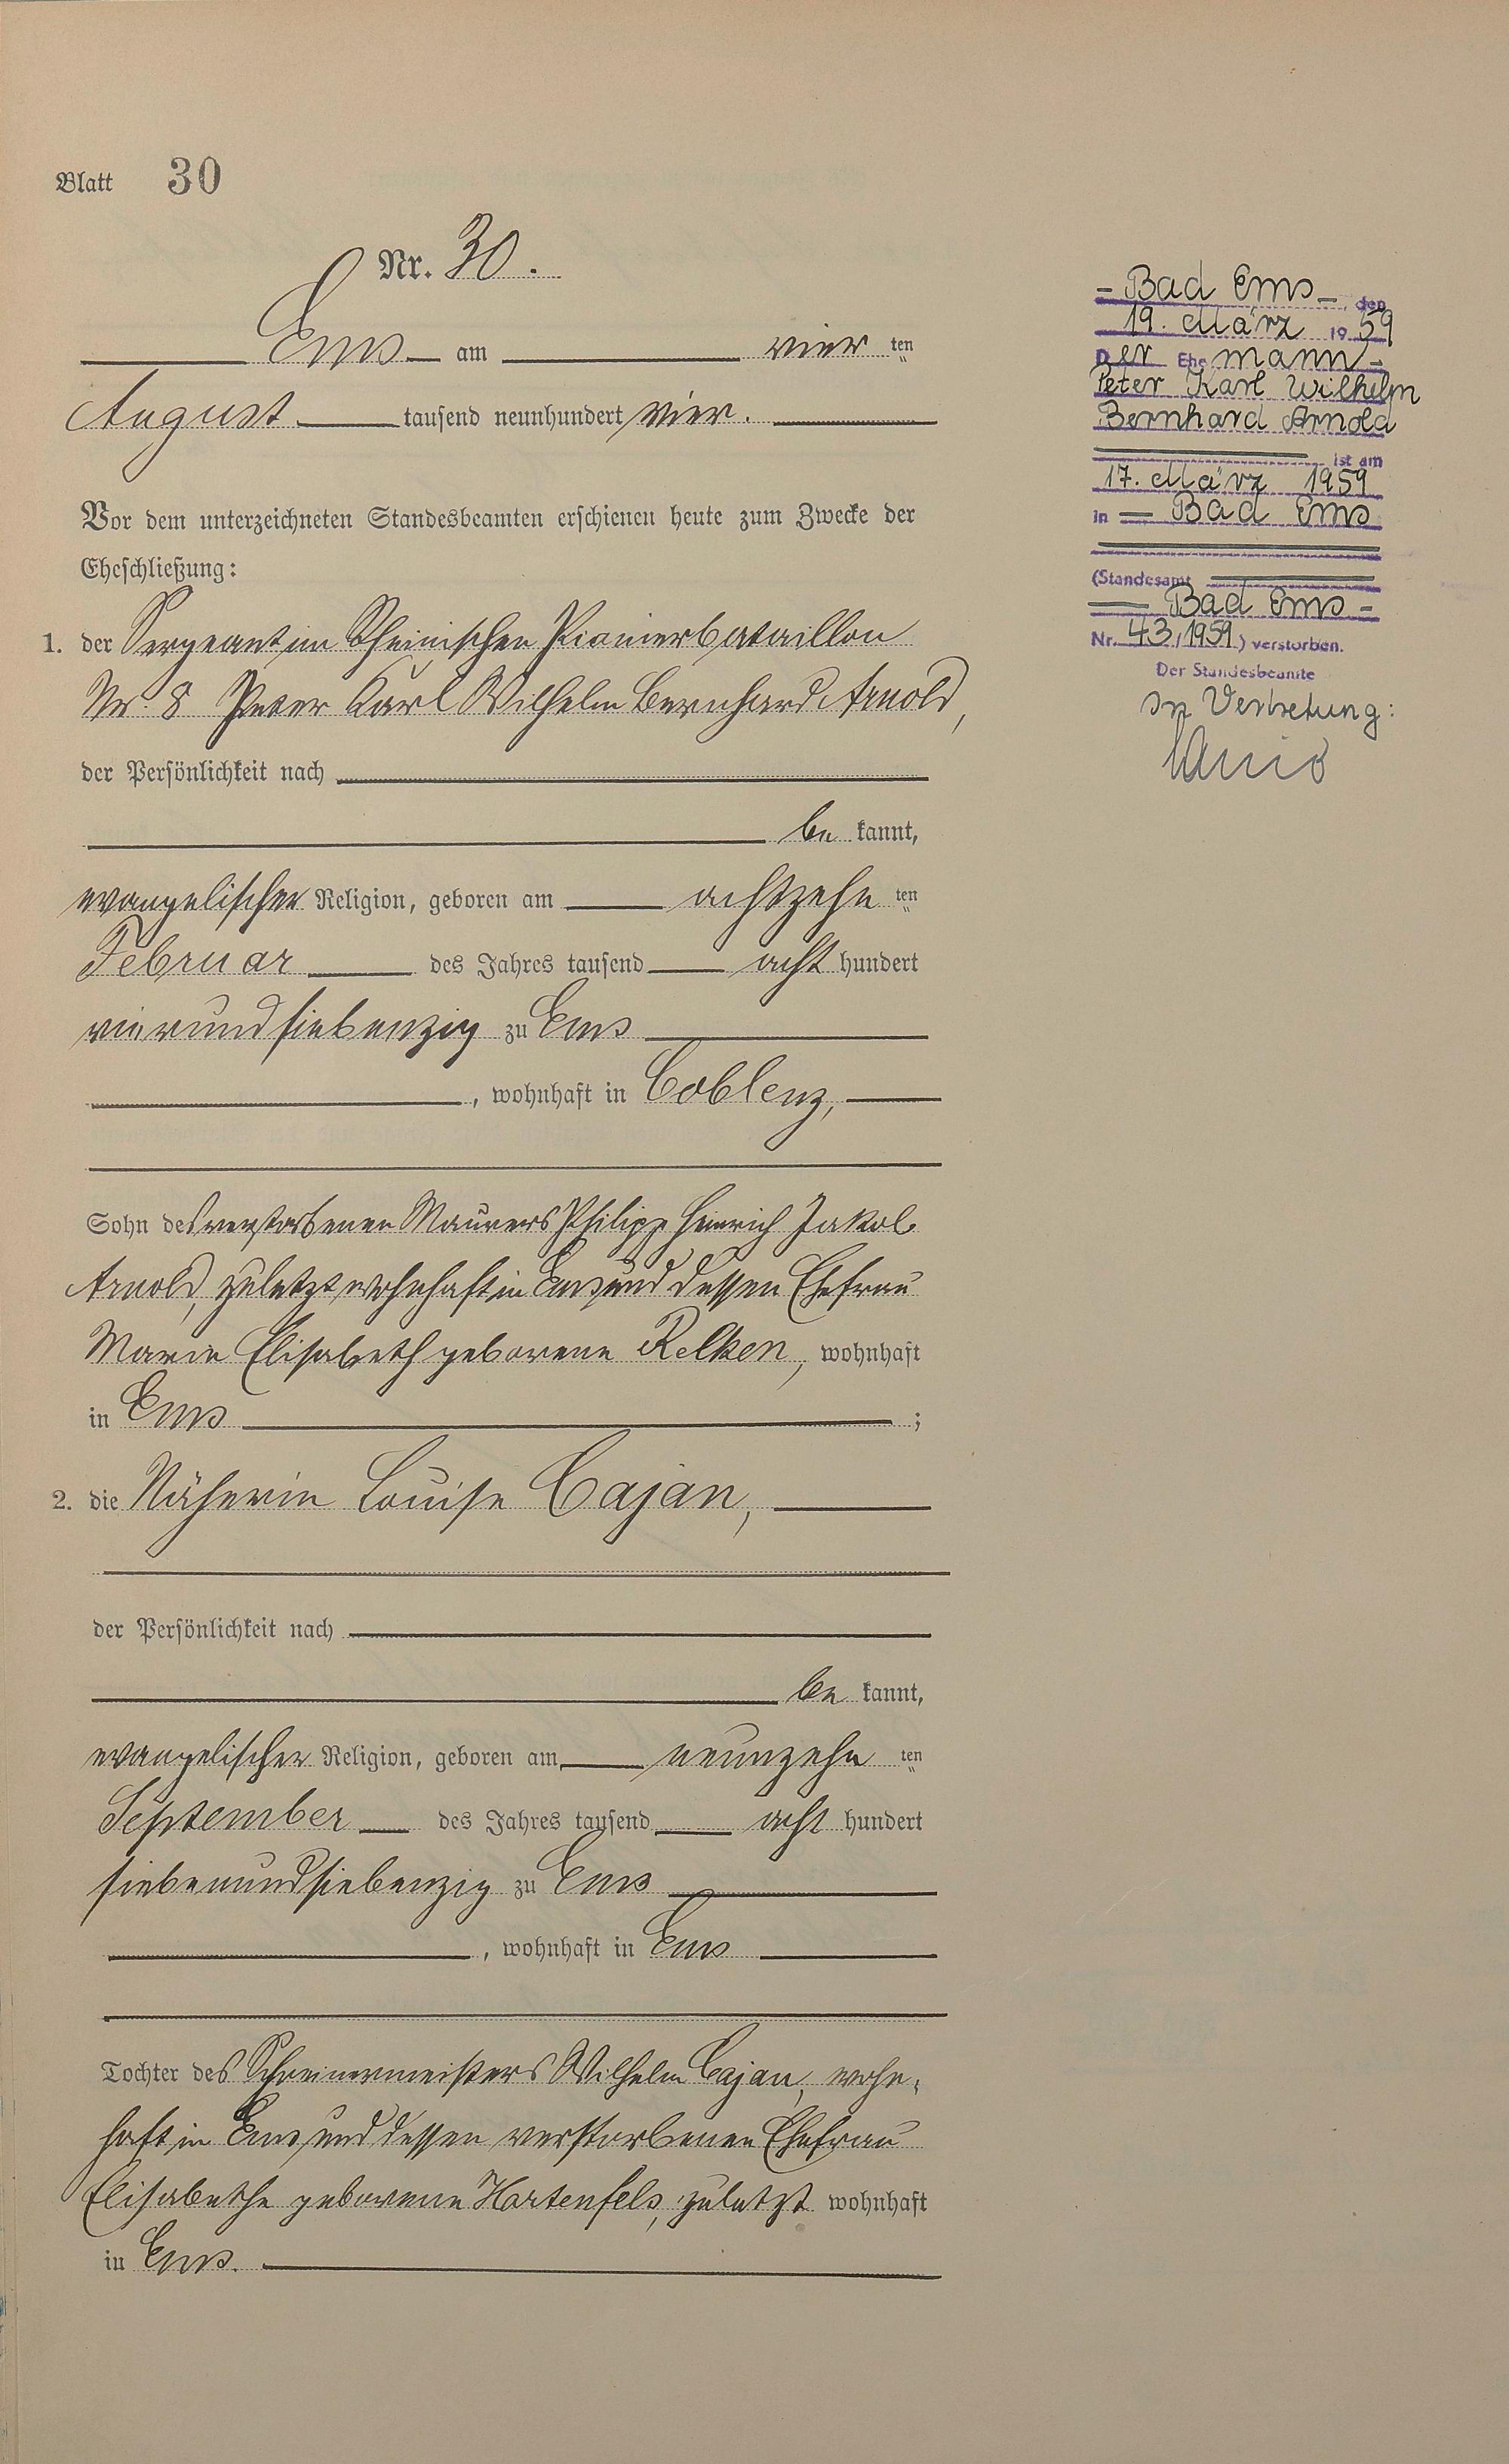 Blatt 30
Nr. 30.
Ems am vier ten
August tausend neunhundert vier.
Vor dem unterzeichneten Standesbeamten erschienen heute zum Zwecke der
Eheschließung:
1. der Sergeant im Rheinischen Pionierbataillon
Nr. 8 Peter Karl Wilhelm Bernhard Arnold,
der Persönlichkeit nach
be kannt,
evangelischer Religion, geboren am achtzehn ten
Februar des Jahres tausend acht hundert
vierundsiebenzig zu Ems
, wohnhaft in Coblenz,
Sohn des verstorbenen Maurers Philipp Heinrich Jakob
Arnold, zuletzt wohnhaft in Ems und dessen Ehefrau
Marie Elisabeth geborene Relken, wohnhaft
in Ems ;
2. die Näherin Louise Cajan,
der Persönlichkeit nach
be kannt,
evangelischer Religion, geboren am neunzehn ten
September des Jahres tausend acht hundert
siebenundsiebenzig zu Ems
, wohnhaft in Ems
Tochter des Schreinermeisters Wilhelm Cajan, wohn-
haft in Ems und dessen verstorbenen Ehefrau
Elisabethe geborene Hartenfels, zuletzt wohnhaft
in Ems.
- Bad Ems -, den
19. März 1959
Der Ehemann -
Peter Karl Wilhelm
Bernhard Arnold
ist am
17. März 1959
in - Bad Ems
(Standesamt
- Bad Ems -
Nr. 43/1959) verstorben.
Der Standesbeamte
In Vertretung: